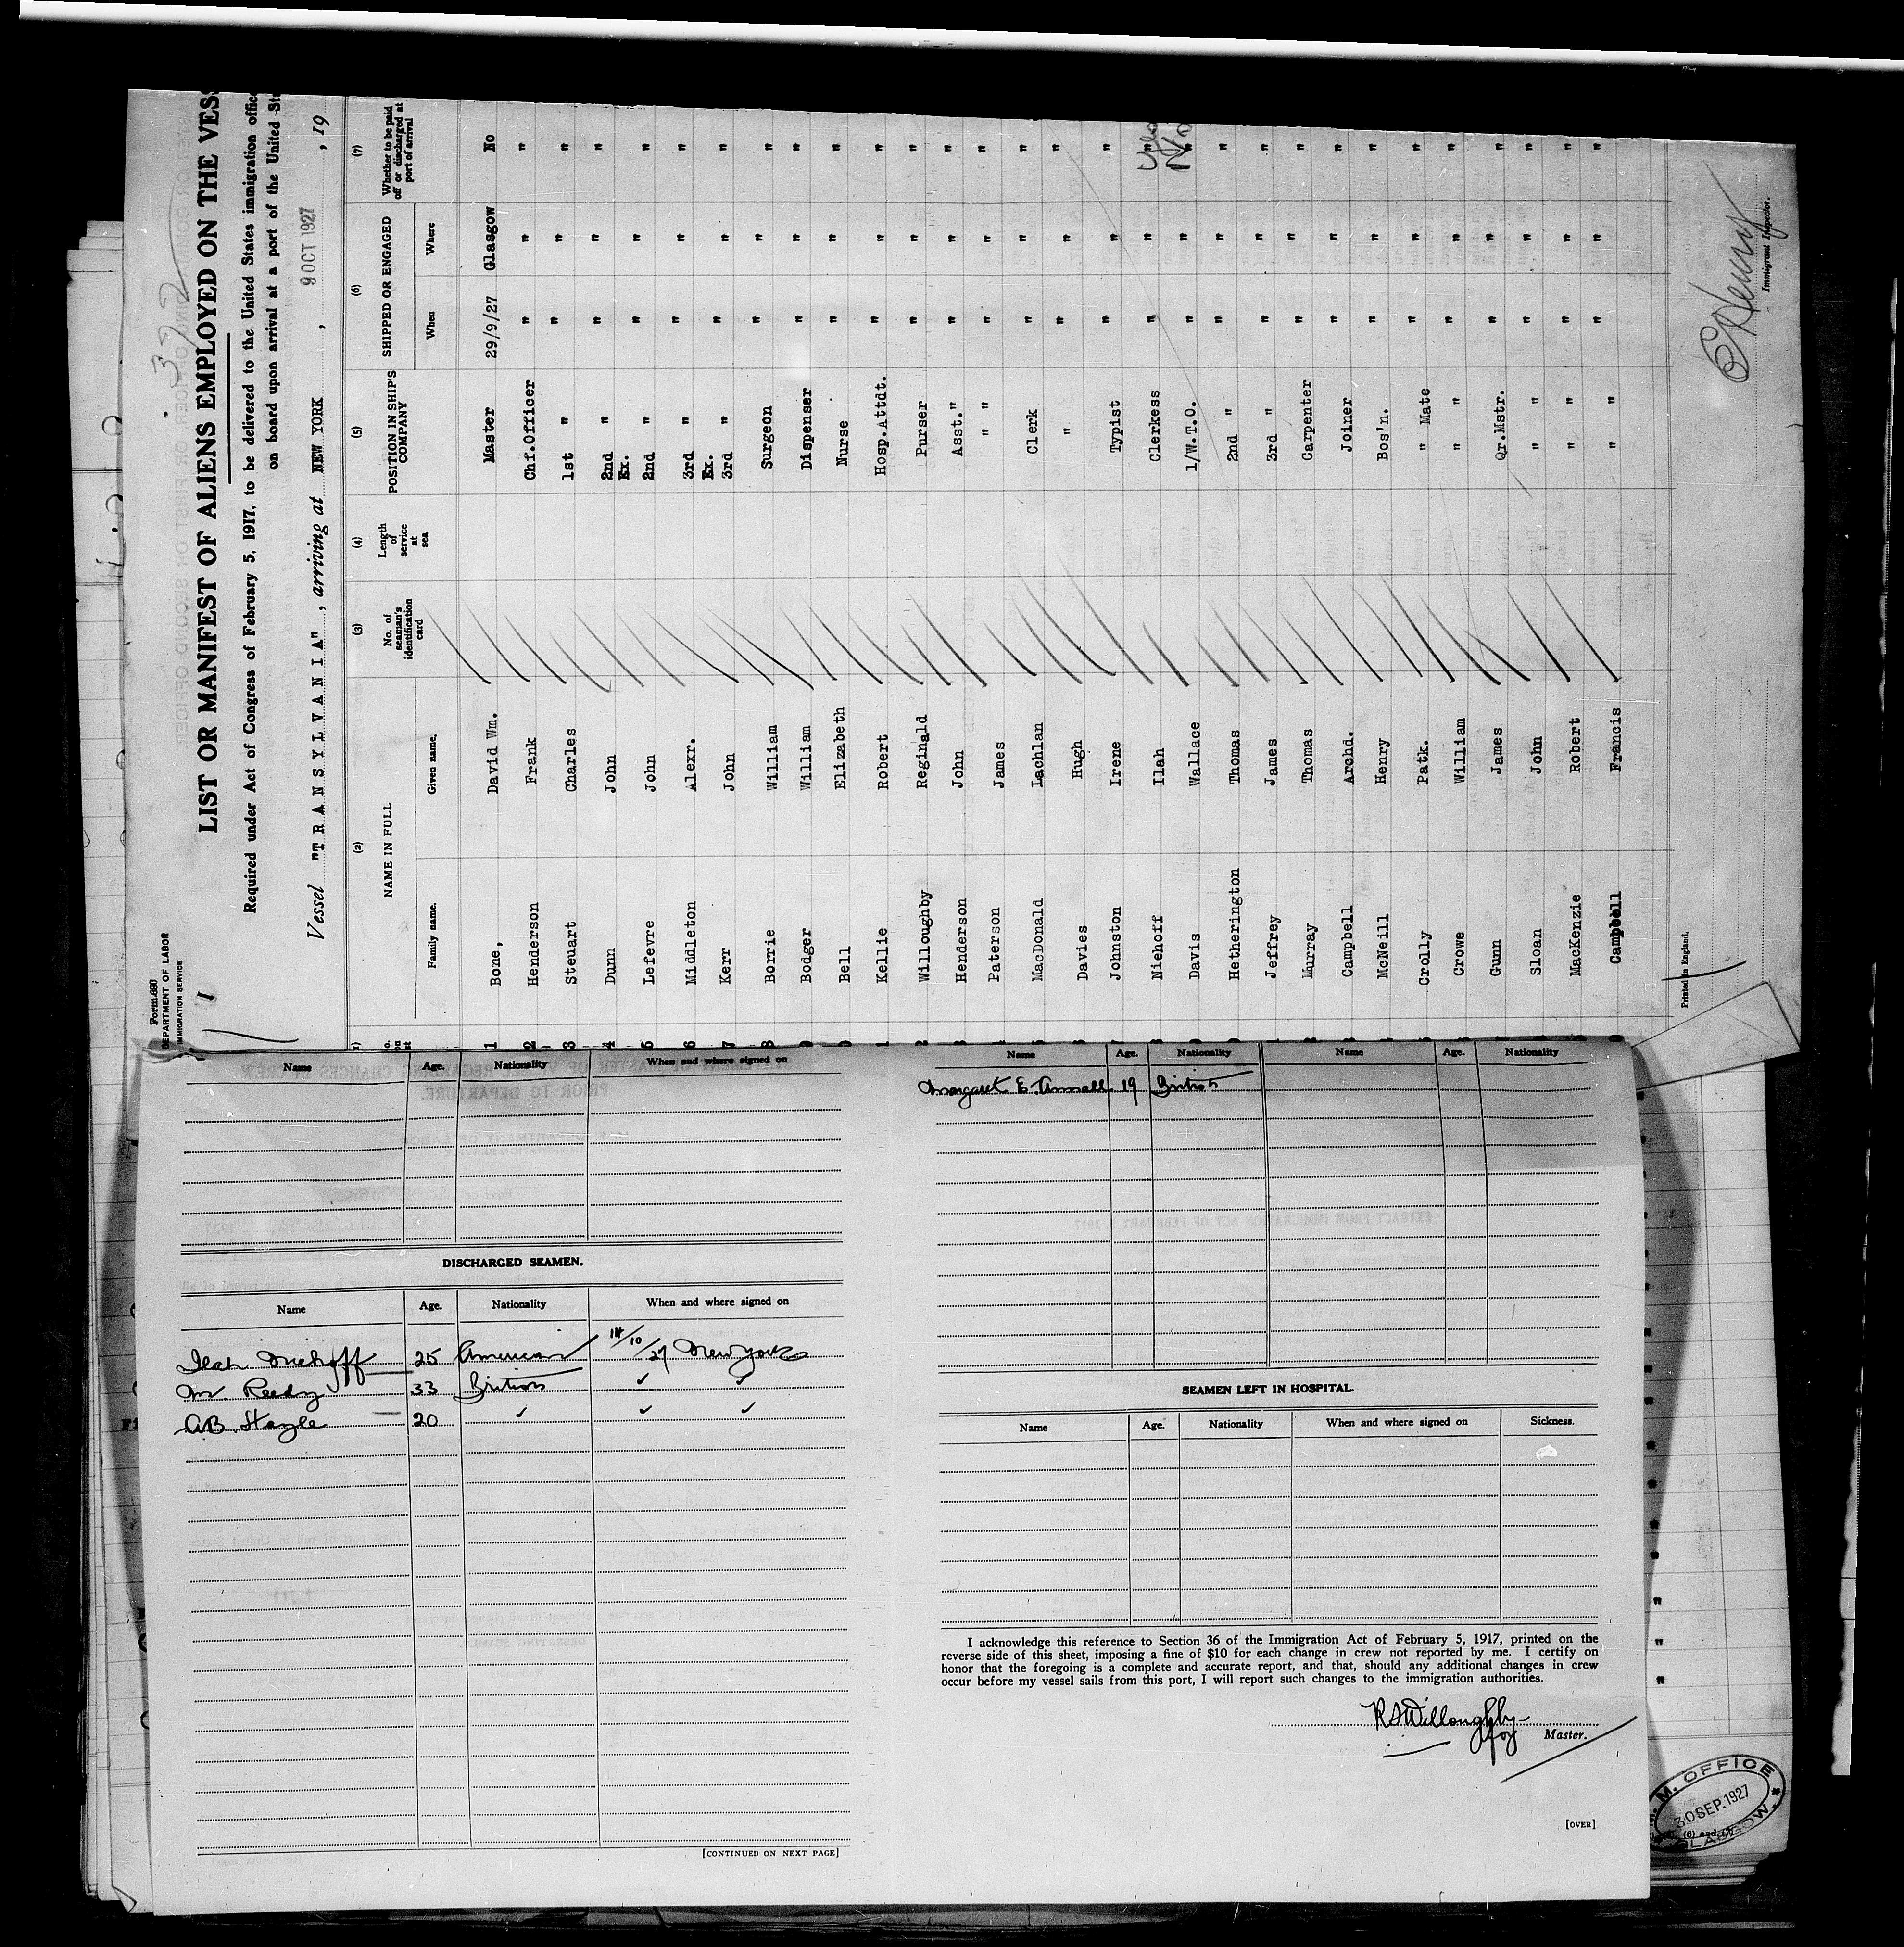 Form 690
DEPARTMENT OF LABOR
IMMIGRATION SERVICE
1
372
LIST OR MANIFEST OF ALIENS EMPLOYED ON THE VESS
Required under Act of Congress of February 5, 1917, to be delivered to the United States immigration offic
on board upon arrival at a port of the United St
Vessel "TRANSYLVANIA", arriving at NEW YORK, 9 OCT 1927, 19
(2) (3) (4) (5) (6) (7)
NAME IN FULL No. of seaman's identification card Length of service at sea POSITION IN SHIP'S COMPANY SHIPPED OR ENGAGED Whether to be paid off or discharged at port of arrival
Family name. Given name. When Where
1 Bone, David Wm. Master 29/9/27 Glasgow No
2 Henderson Frank Chf.Officer " " "
3 Steuart Charles 1st " " " "
4 Dunn John 2nd " " " "
5 Lefevre John Ex. 2nd " " " "
6 Middleton Alexr. 3rd " " " "
7 Kerr John Ex. 3rd " " " "
8 Borrie William Surgeon " " "
9 Bodger William Dispenser " " "
0 Bell Elizabeth Nurse " " "
1 Kellie Robert Hosp.Attdt. " " "
2 Willoughby Reginald Purser " " "
Henderson John Asst." " " "
Paterson James " " " " "
MacDonald Lachlan Clerk " " "
Davies Hugh " " " "
Johnston Irene Typist " " "
Niehoff Ilah Clerkess " " "
Davis Wallace 1/W.T.O. " " "
Hetherington Thomas 2nd " " " "
Jeffrey James 3rd " " " "
Murray Thomas Carpenter " " "
Campbell Archd. Joiner " " "
McNeill Henry Bos'n. " " "
Crolly Patk. " Mate " " "
Crowe William " " " " "
Gunn James Qr.Mstr. " " "
Sloan John " " " "
MacKenzie Robert " " " "
Campbell Francis " " " "
Printed in England.
Immigrant Inspector.
Name Age. Nationality When and where signed on
DISCHARGED SEAMEN.
Name Age. Nationality When and where signed on
Ilah Niehoff 25 American 14/10/27 New York
M Reedy 33 British ✓ ✓
AB. Steyle 20 ✓ ✓ ✓
[CONTINUED ON NEXT PAGE]
Name Age. Nationality Name Age. Nationality
Margaret E. 19 British
SEAMEN LEFT IN HOSPITAL.
Name Age. Nationality When and where signed on Sickness.
I acknowledge this reference to Section 36 of the Immigration Act of February 5, 1917, printed on the
reverse side of this sheet, imposing a fine of $10 for each change in crew not reported by me. I certify on
honor that the foregoing is a complete and accurate report, and that, should any additional changes in crew
occur before my vessel sails from this port, I will report such changes to the immigration authorities.
Willoughby
for Master.
[OVER]
M. M. OFFICE
30 SEP. 1927
GLASGOW